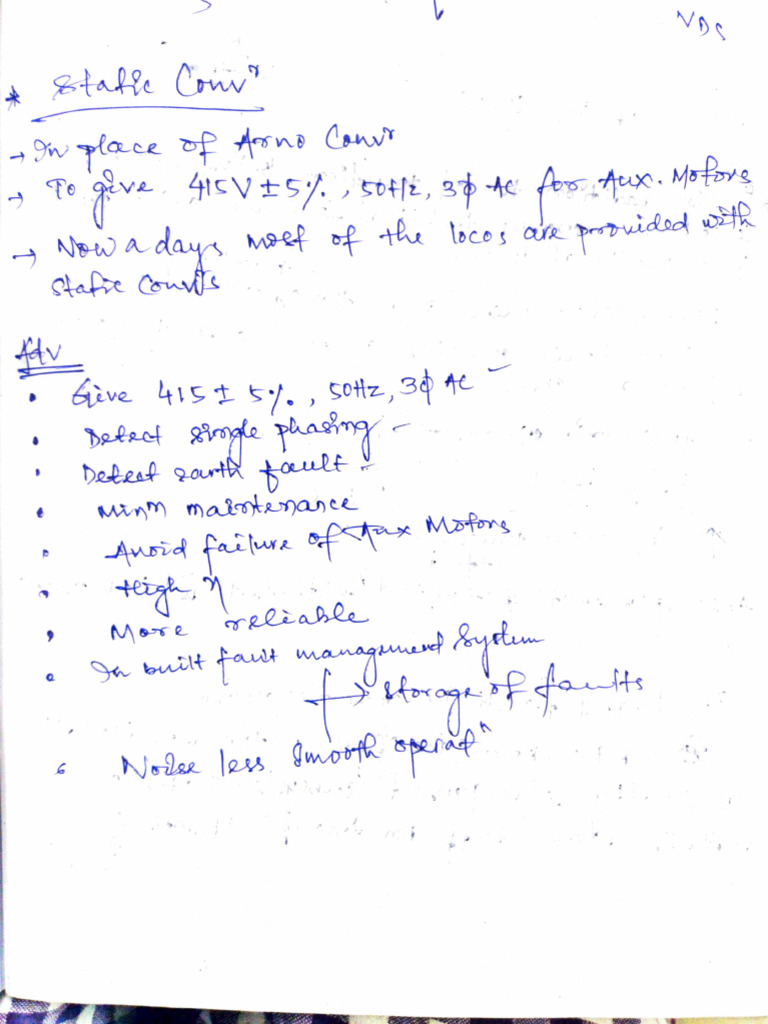 VDS
* Static Convr
→ In place of Arno Convr
→ To give 415V ± 5%, 50Hz, 3ϕ AC for Aux. Motors
→ Now a days most of the locos are provided with
Static Convrs
Adv
• Give 415 ± 5%, 50Hz, 3ϕ AC
• Detect single phasing
• Detect earth fault
• Minm maintenance
• Avoid failure of Aux Motors
• High η
• More reliable
• In built fault management System
→ Storage of faults
• Noise less smooth operatn